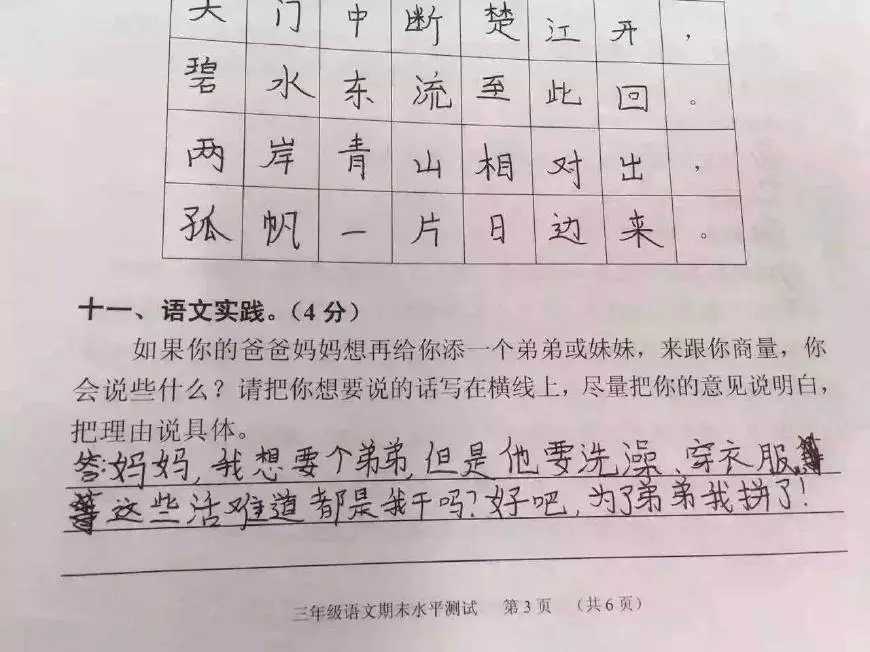 天门中断楚江开，
碧水东流至此回。
两岸青山相对出，
孤帆一片日边来。
十一、语文实践。（4分）
如果你的爸爸妈妈想再给你添一个弟弟或妹妹，来跟你商量，你
会说些什么？请把你想要说的话写在横线上，尽量把你的意见说明白，
把理由说具体。
答：妈妈，我想要个弟弟，但是他要洗澡、穿衣服
这些活难道都是我干吗？好吧，为了弟弟我拼了！
三年级语文期末水平测试 第3页 （共6页）